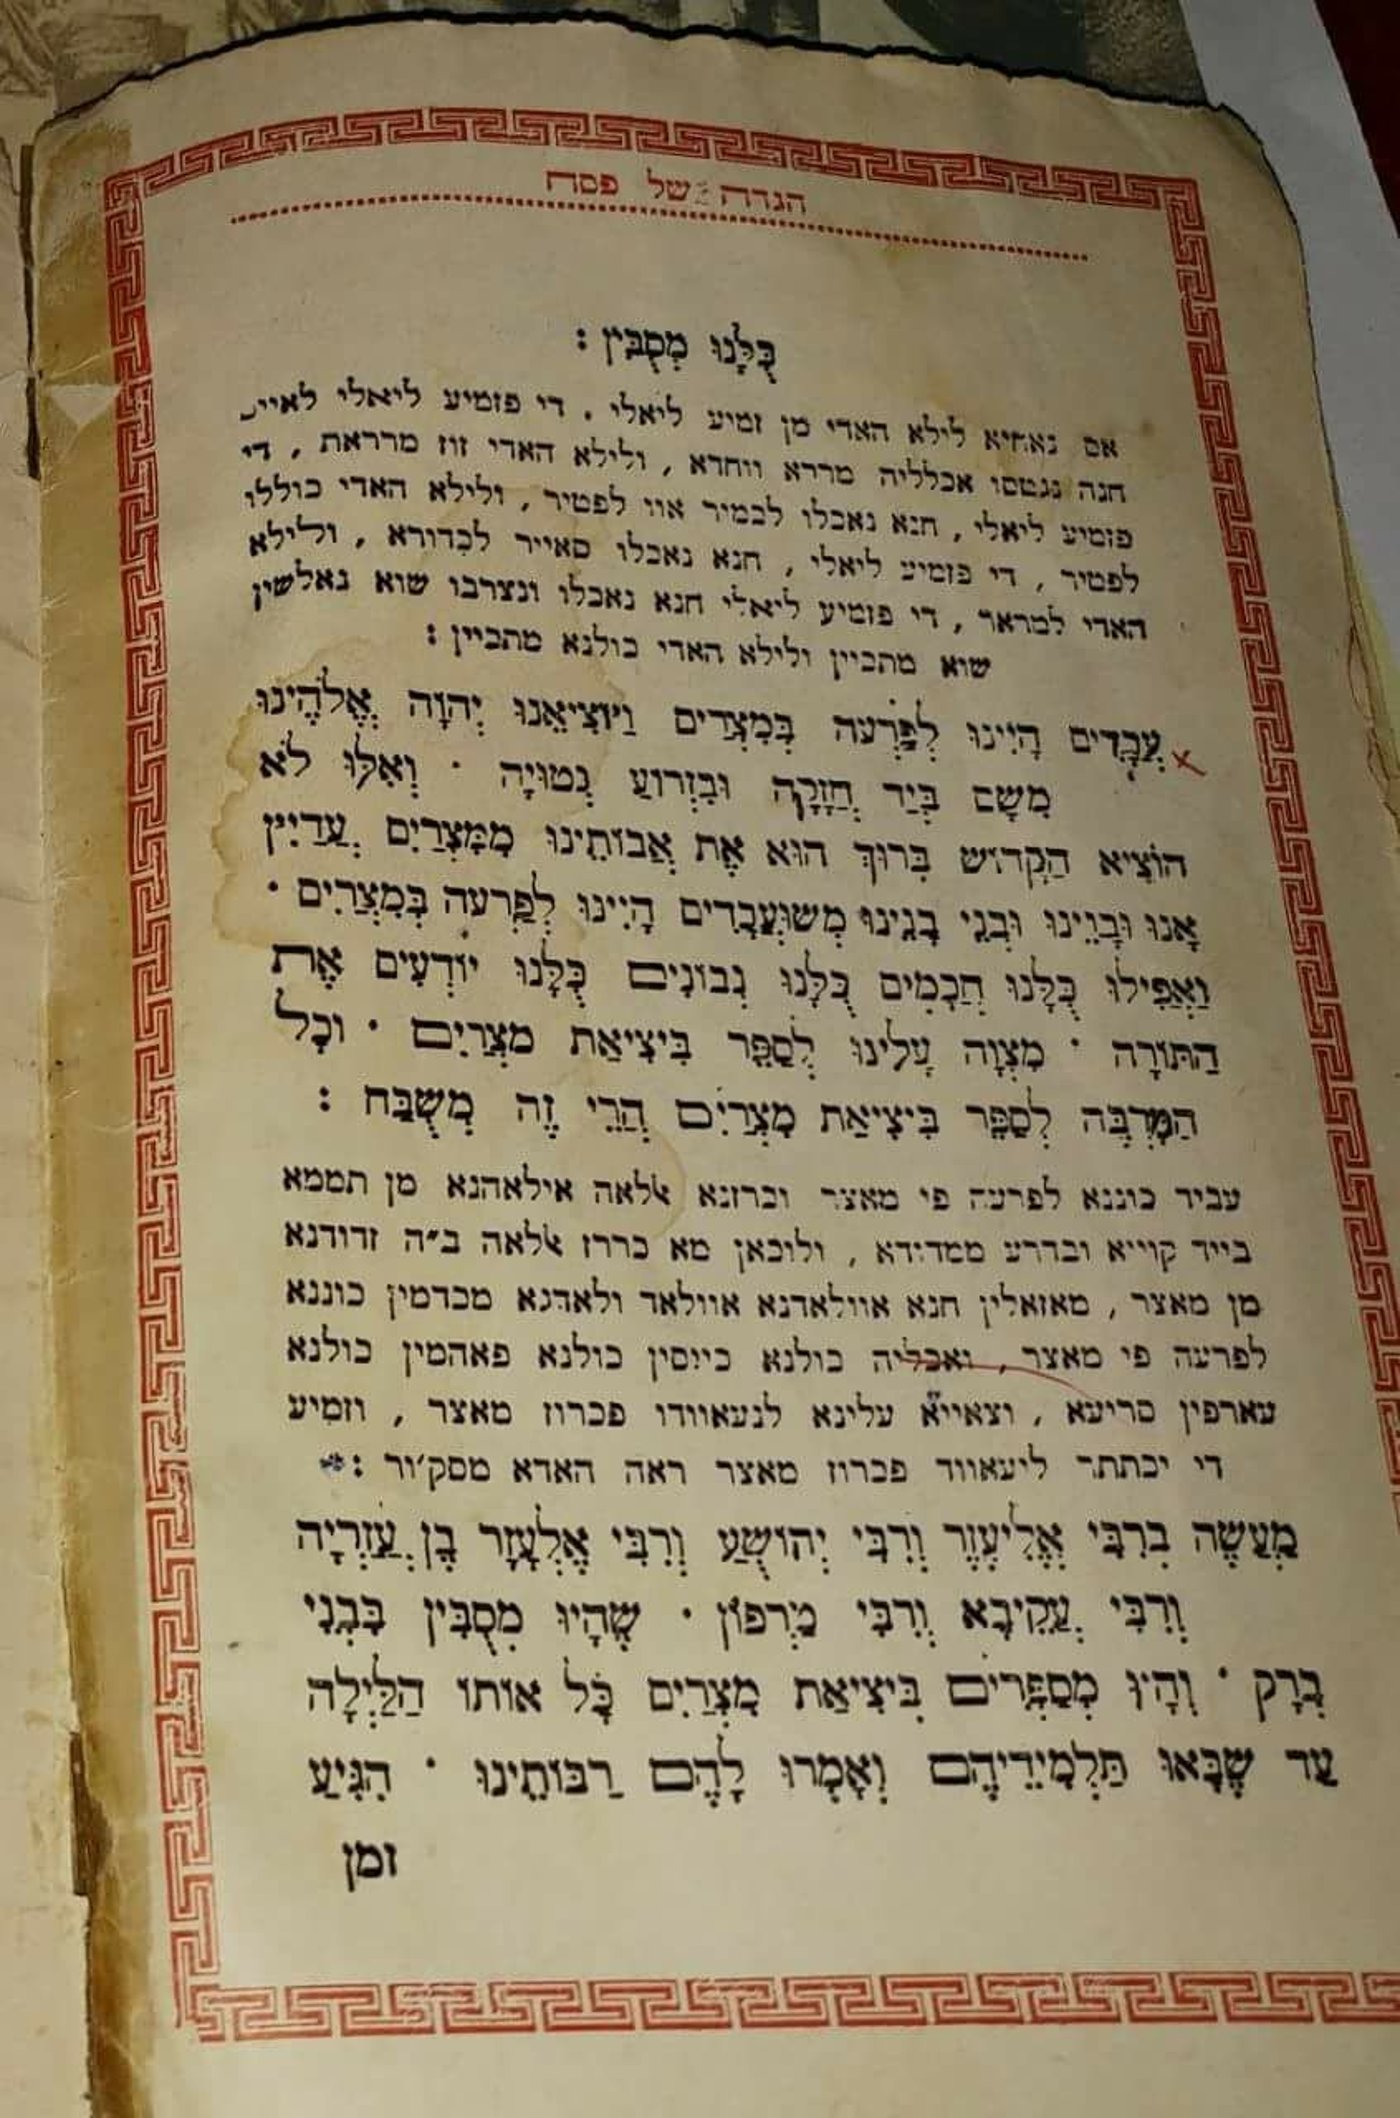 הגדה של פסח
כֻּלָּנוּ מְסֻבִּין :
אס נאחיא לילא האדי מן זמיע ליאלי . די פזמיע ליאלי
חנה נגטסו אכלליה מררא ווחדא , ולילא האדי זוז מרראת , די
פזמיע ליאלי , חנא נאכלו לכמיר אוו לפטיר , ולילא האדי כוללו
לפטיר , די פזמיע ליאלי , חנא נאכלו סאייר לכדורא , ולילא
האדי למראר , די פזמיע ליאלי חנא נאכלו ונצרבו שוא גאלשין
שוא מתכיין ולילא האדי כולנא מתכיין :
עֲבָדִים הָיִינוּ לְפַרְעֹה בְּמִצְרַיִם וַיּוֹצִיאֵנוּ יְהוָה אֱלֹהֵינוּ
מִשָּׁם בְּיַד חֲזָקָה וּבִזְרוֹעַ נְטוּיָה · וְאִלּוּ לֹא
הוֹצִיא הַקָּדוֹשׁ בָּרוּךְ הוּא אֶת אֲבוֹתֵינוּ מִמִּצְרַיִם עֲדַיִין
אָנוּ וּבָנֵינוּ וּבְנֵי בָנֵינוּ מְשׁוּעְבָּדִים הָיִינוּ לְפַרְעֹה בְּמִצְרַיִם ·
וַאֲפִילוּ כֻּלָּנוּ חֲכָמִים כֻּלָּנוּ נְבוֹנִים כֻּלָּנוּ יוֹדְעִים אֶת
הַתּוֹרָה · מִצְוָה עָלֵינוּ לְסַפֵּר בִּיצִיאַת מִצְרַיִם · וְכָל
הַמַּרְבֶּה לְסַפֵּר בִּיצִיאַת מִצְרַיִם הֲרֵי זֶה מְשֻׁבָּח :
עביד כוננא לפרעה פי מאצר וכרזנא אלאה אילאהנא מן תממא
בייד קוייא ובדרע ממדודא , ולוכאן מא כררז אלאה ב״ה זדודנא
מן מאצר , מאזאלין חנא אוולאדנא אוולאד ולאדנא מכדמין כוננא
לפרעה פי מאצר , ואכליה כולנא כייסין כולנא פאהמין כולנא
עארפין סריעא , וצאייא עלינא לנעאוודו פכרוז מאצר , וזמיע
די יכתתר ליעאווד פכרוז מאצר ראה האדא מסק׳ור :
מַעֲשֶׂה בְרִבִּי אֱלִיעֶזֶר וְרִבִּי יְהוֹשֻׁעַ וְרִבִּי אֶלְעָזָר בֶּן עֲזַרְיָה
וְרִבִּי עֲקִיבָא וְרִבִּי טַרְפוֹן · שֶׁהָיוּ מְסֻבִּין בִּבְנֵי
בְרָק · וְהָיוּ מְסַפְּרִים בִּיצִיאַת מִצְרַיִם כָּל אוֹתוֹ הַלַּיְלָה
עַד שֶׁבָּאוּ תַּלְמִידֵיהֶם וְאָמְרוּ לָהֶם רַבּוֹתֵינוּ · הִגִּיעַ
זמן